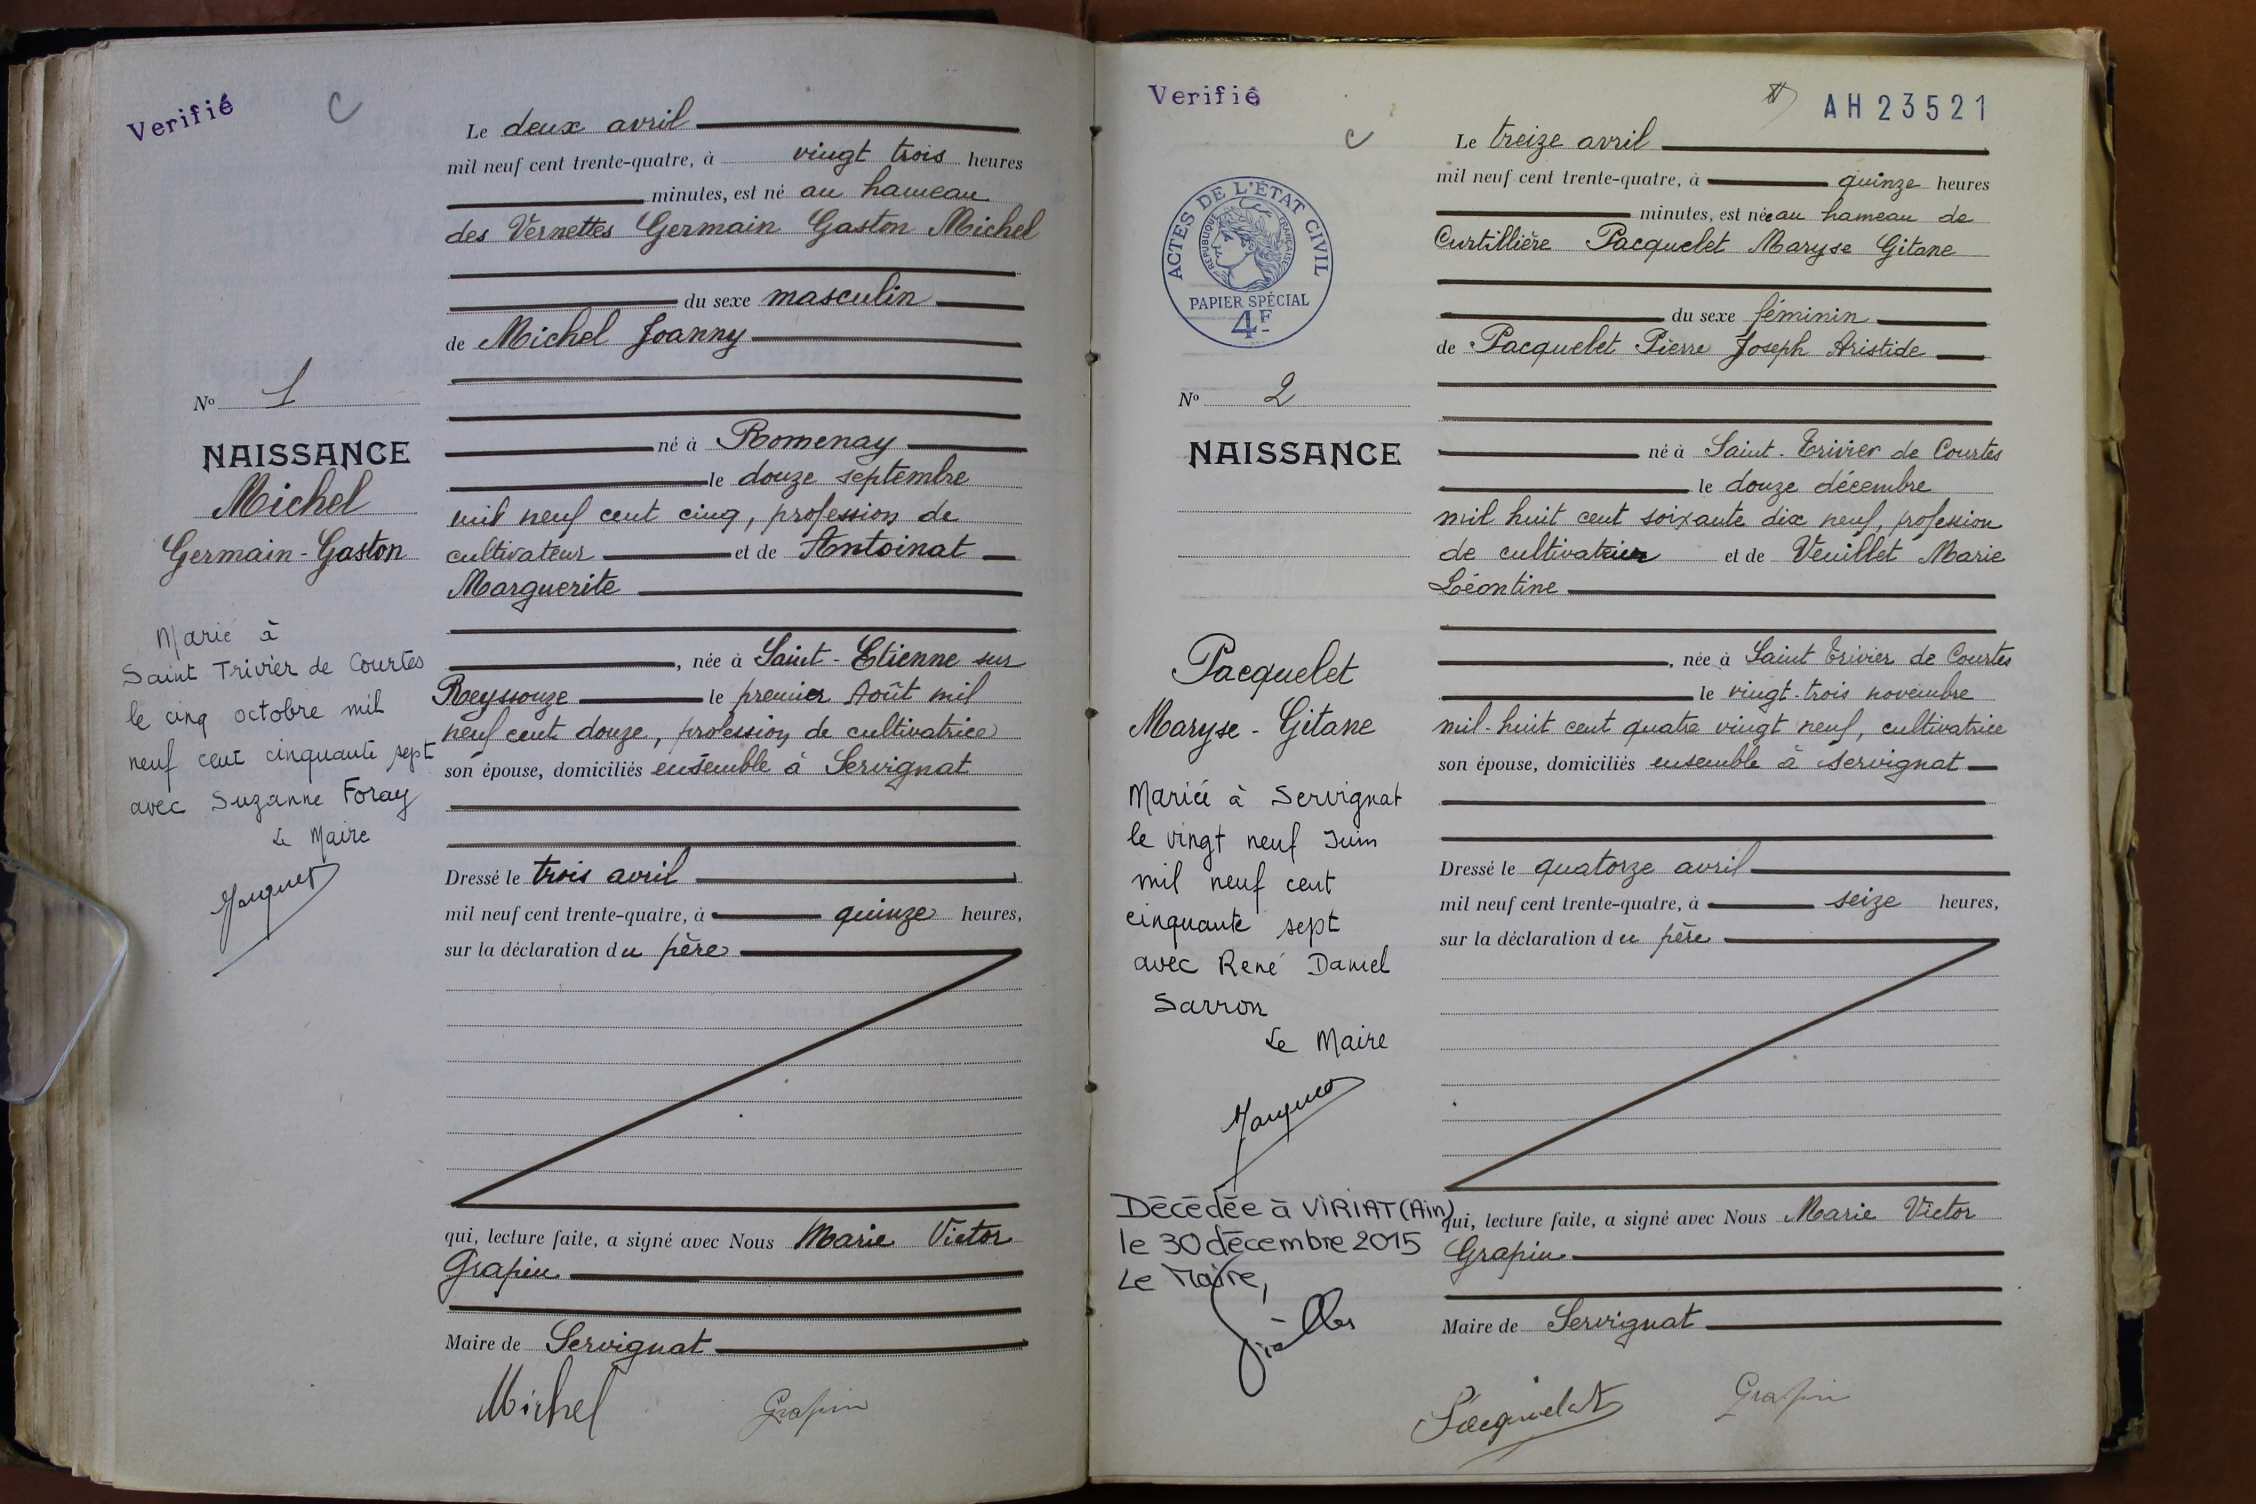 Verifié
C
Le deux avril
mil neuf cent trente-quatre, à vingt trois heures
minutes, est né au hameau
des Vernettes Germain Gaston Michel
du sexe masculin
de Michel Joanny
né à Romenay
le douze septembre
mil neuf cent cinq, profession de
cultivateur et de Antoinat
Marguerite
, née à Saint-Etienne sur
Reyssouze le premier Août mil
neuf cent douze, profession de cultivatrice
son épouse, domiciliés ensemble à Servignat
Dressé le trois avril
mil neuf cent trente-quatre, à quinze heures,
sur la déclaration du père
qui, lecture faite, a signé avec Nous Marie Victor
Grapin
Maire de Servignat
Michel Grapin
No 1
NAISSANCE
Michel
Germain-Gaston
Marié à
Saint Trivier de Courtes
le cinq octobre mil
neuf cent cinquante sept
avec Suzanne Foray
Le Maire
Verifié
C
AH 23521
ACTES DE L'ÉTAT CIVIL
RÉPUBLIQUE FRANÇAISE
PAPIER SPÉCIAL
4F
Le treize avril
mil neuf cent trente-quatre, à quinze heures
minutes, est née au hameau de
Curtillière Pacquelet Maryse Gitane
du sexe féminin
de Pacquelet Pierre Joseph Aristide
né à Saint-Trivier de Courtes
le douze décembre
mil huit cent soixante dix neuf, profession
de cultivateur et de Veuillet Marie
Léontine
, née à Saint Trivier de Courtes
le vingt-trois novembre
mil-huit cent quatre vingt neuf, cultivatrice
son épouse, domiciliés ensemble à Servignat
Dressé le quatorze avril
mil neuf cent trente-quatre, à seize heures,
sur la déclaration du père
qui, lecture faite, a signé avec Nous Marie Victor
Grapin
Maire de Servignat
Pacquelet Grapin
No 2
NAISSANCE
Pacquelet
Maryse-Gitane
Mariée à Servignat
le vingt neuf Juin
mil neuf cent
cinquante sept
avec René Daniel
Sarron
Le Maire
Décédée à VIRIAT (Ain)
le 30 décembre 2015
Le Maire,